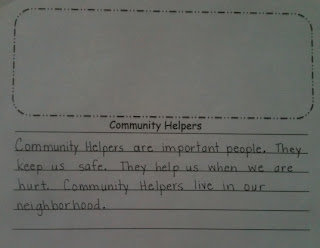 Community Helpers
Community Helpers are important people. They
keep us safe. They help us when we are
hurt. Community Helpers live in our
neighborhood.